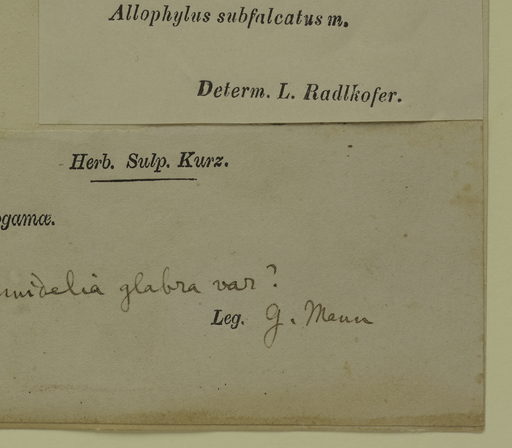 Allophylus subfalcatus m.
Determ. L. Radlkofer.
Herb. Sulp. Kurz.
ogamæ.
midelia glabra var?
Leg. G. Mann